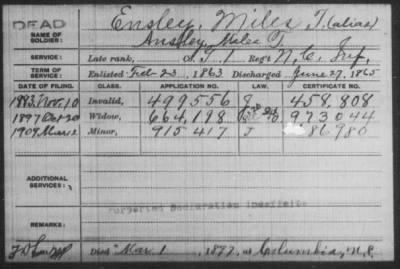 DEAD
Ensley, Miles T. (alias)
NAME OF SOLDIER:
Ansley, Miles T.
SERVICE: Late rank, Co. I Reg't N.C. Inf.
TERM OF SERVICE: Enlisted Feb 23, 1863 Discharged June 27, 1865
DATE OF FILING. CLASS. APPLICATION NO. LAW. CERTIFICATE NO.
1883 Nov. 10 Invalid, 499,556 458,808
1897 Oct 20 Widow, 664,198 973044
1909 Mar 12 Minor, 915 417 86980
ADDITIONAL SERVICES:
REMARKS:
Died Mar 1, 1897, at Columbia, N.C.